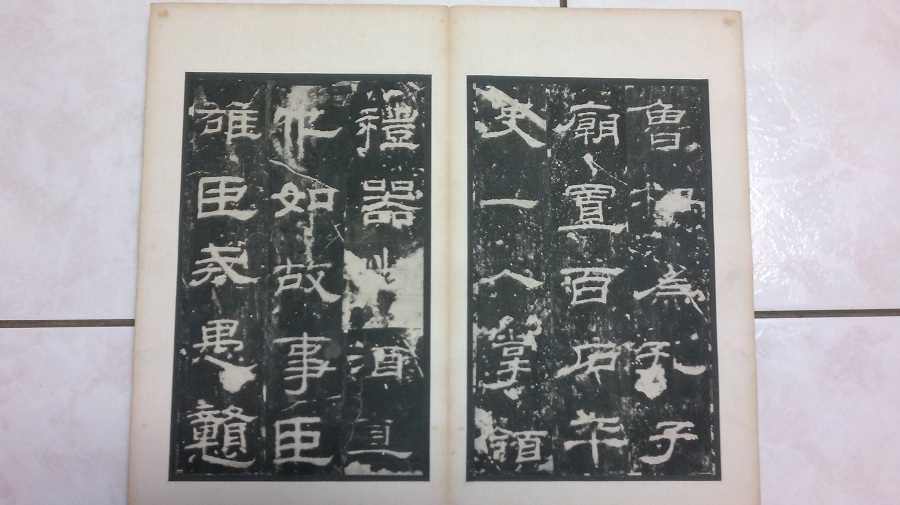 魯相為孔子
廟置百石卒
史一人掌領
禮器酒直
他如故事臣
雄臣戒愚戇